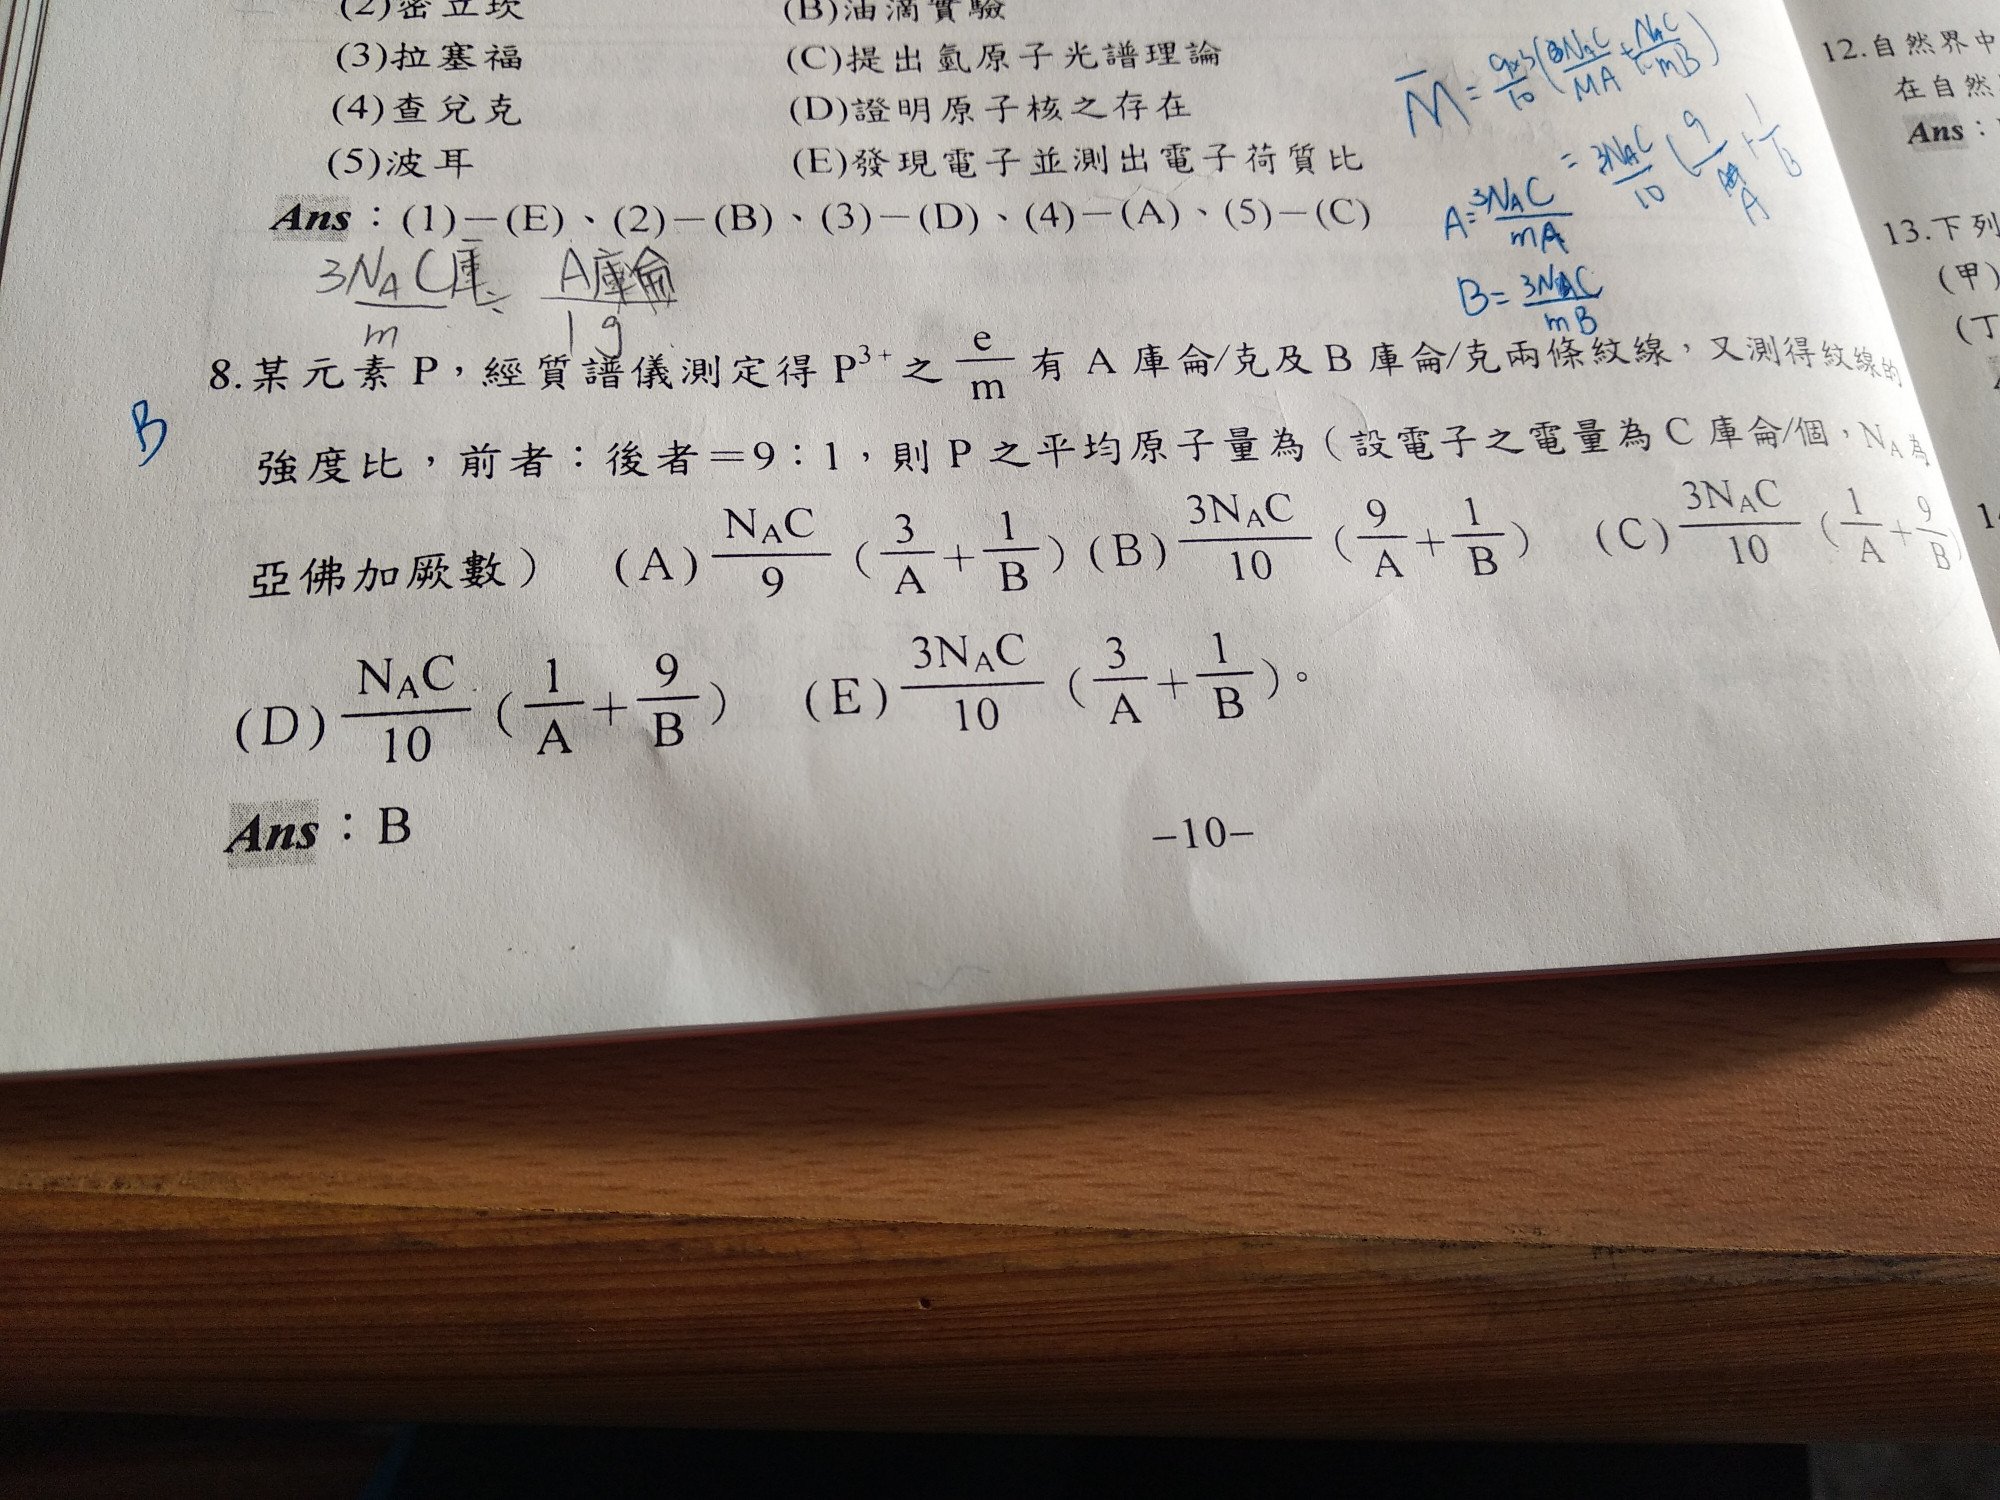 (2)密立坎 (B)油滴實驗
(3)拉塞福 (C)提出氫原子光譜理論
(4)查兌克 (D)證明原子核之存在
(5)波耳 (E)發現電子並測出電子荷質比
Ans：(1)－(E)、(2)－(B)、(3)－(D)、(4)－(A)、(5)－(C)
3NAC庫/m = A庫侖/1g
M̄ = 9×3/10 (3NAC/MA + NAC/mB)
= 3NAC/10 (9/A + 1/B)
A = 3NAC/mA
B = 3NAC/mB
B
8.某元素 P，經質譜儀測定得 P³⁺ 之 e/m 有 A 庫侖/克及 B 庫侖/克兩條紋線，又測得紋線的
強度比，前者：後者＝9：1，則 P 之平均原子量為（設電子之電量為 C 庫侖/個，NA 為
亞佛加厥數） (A) NAC/9 (3/A + 1/B) (B) 3NAC/10 (9/A + 1/B) (C) 3NAC/10 (1/A + 9/B)
(D) NAC/10 (1/A + 9/B) (E) 3NAC/10 (3/A + 1/B)。
Ans：B
–10–
12.自然界中
在自然
Ans：
13.下列
(甲)
(丁